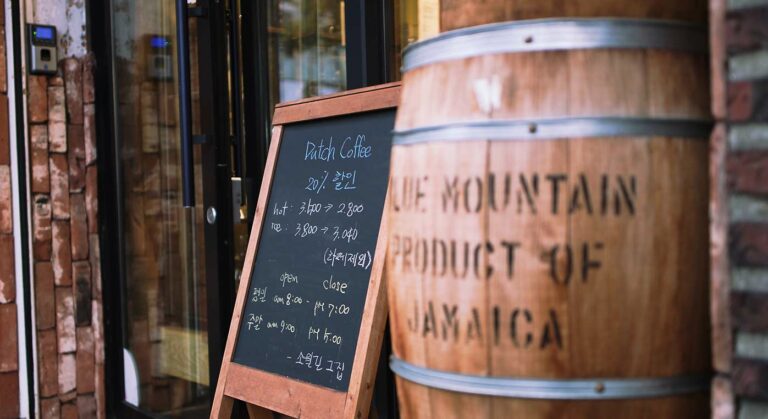 Dutch Coffee
20% 할인
hot : 3.500 → 2.800
ice : 3.800 → 3.040
(라떼제외)
open close
평일 am 8:00 - pm 7:00
주말 am 9:00 pm 5:00
- 소월길 그집
BLUE MOUNTAIN
PRODUCT OF
JAMAICA